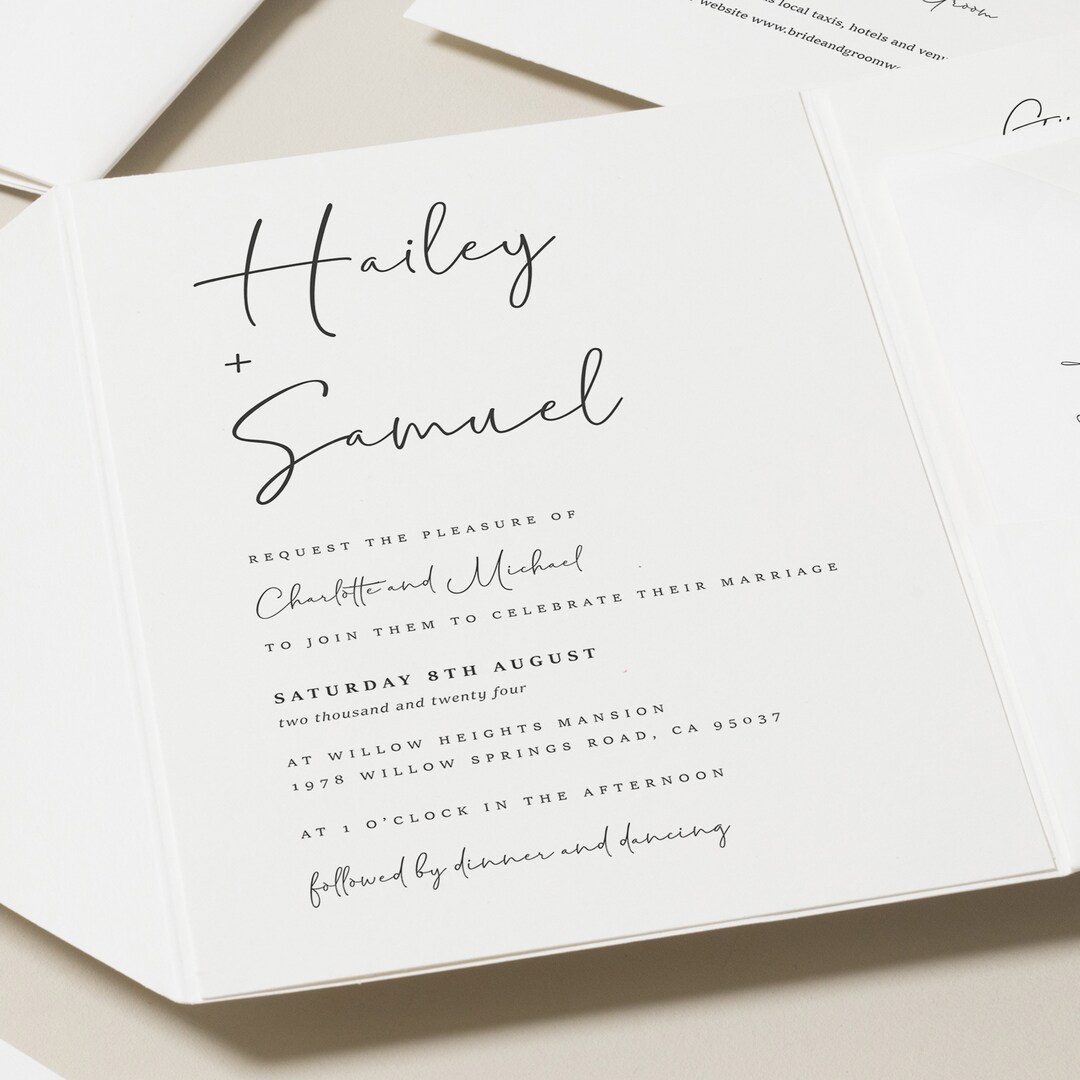 Groom
local taxis, hotels and
website www.brideandgroomw
Hailey
+
Samuel
REQUEST THE PLEASURE OF
Charlotte and Michael
TO JOIN THEM TO CELEBRATE THEIR MARRIAGE
SATURDAY 8TH AUGUST
two thousand and twenty four
AT WILLOW HEIGHTS MANSION
1978 WILLOW SPRINGS ROAD, CA 95037
AT 1 O'CLOCK IN THE AFTERNOON
followed by dinner and dancing